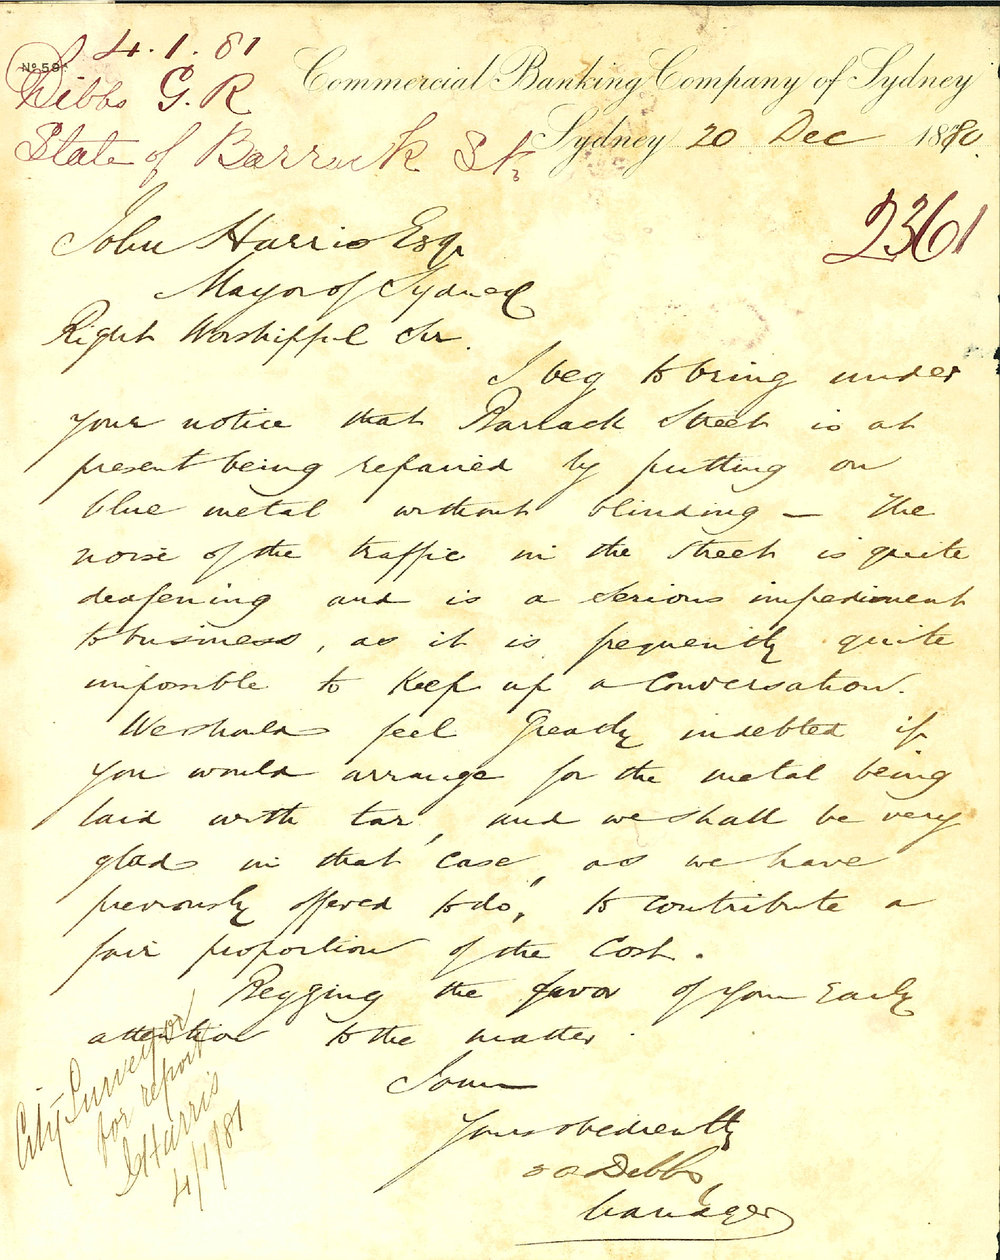 4.1.81
No 59
Dibbs G. R
State of Barrack St
Commercial Banking Company of Sydney
Sydney 20 Dec 1880.
2361
John Harris Esq
Mayor of Sydney
Right Worshipful Sir.
I beg to bring under
your notice that Barrack Street is at
present being repaired by putting on
blue metal without blinding — The
noise of the traffic in the Street is quite
deafening and is a serious impediment
to business, as it is frequently quite
impossible to keep up a conversation.
We should feel Greatly indebted if
you would arrange for the metal being
laid with tar, and we shall be very
glad in that case, as we have
previously offered to do, to contribute a
fair proportion of the Cost.
Begging the favor of your Early
attention to the matter.
I am
Yours obediently
Dibbs,
Manager
City Surveyor
for report
J Harris
4/1/81